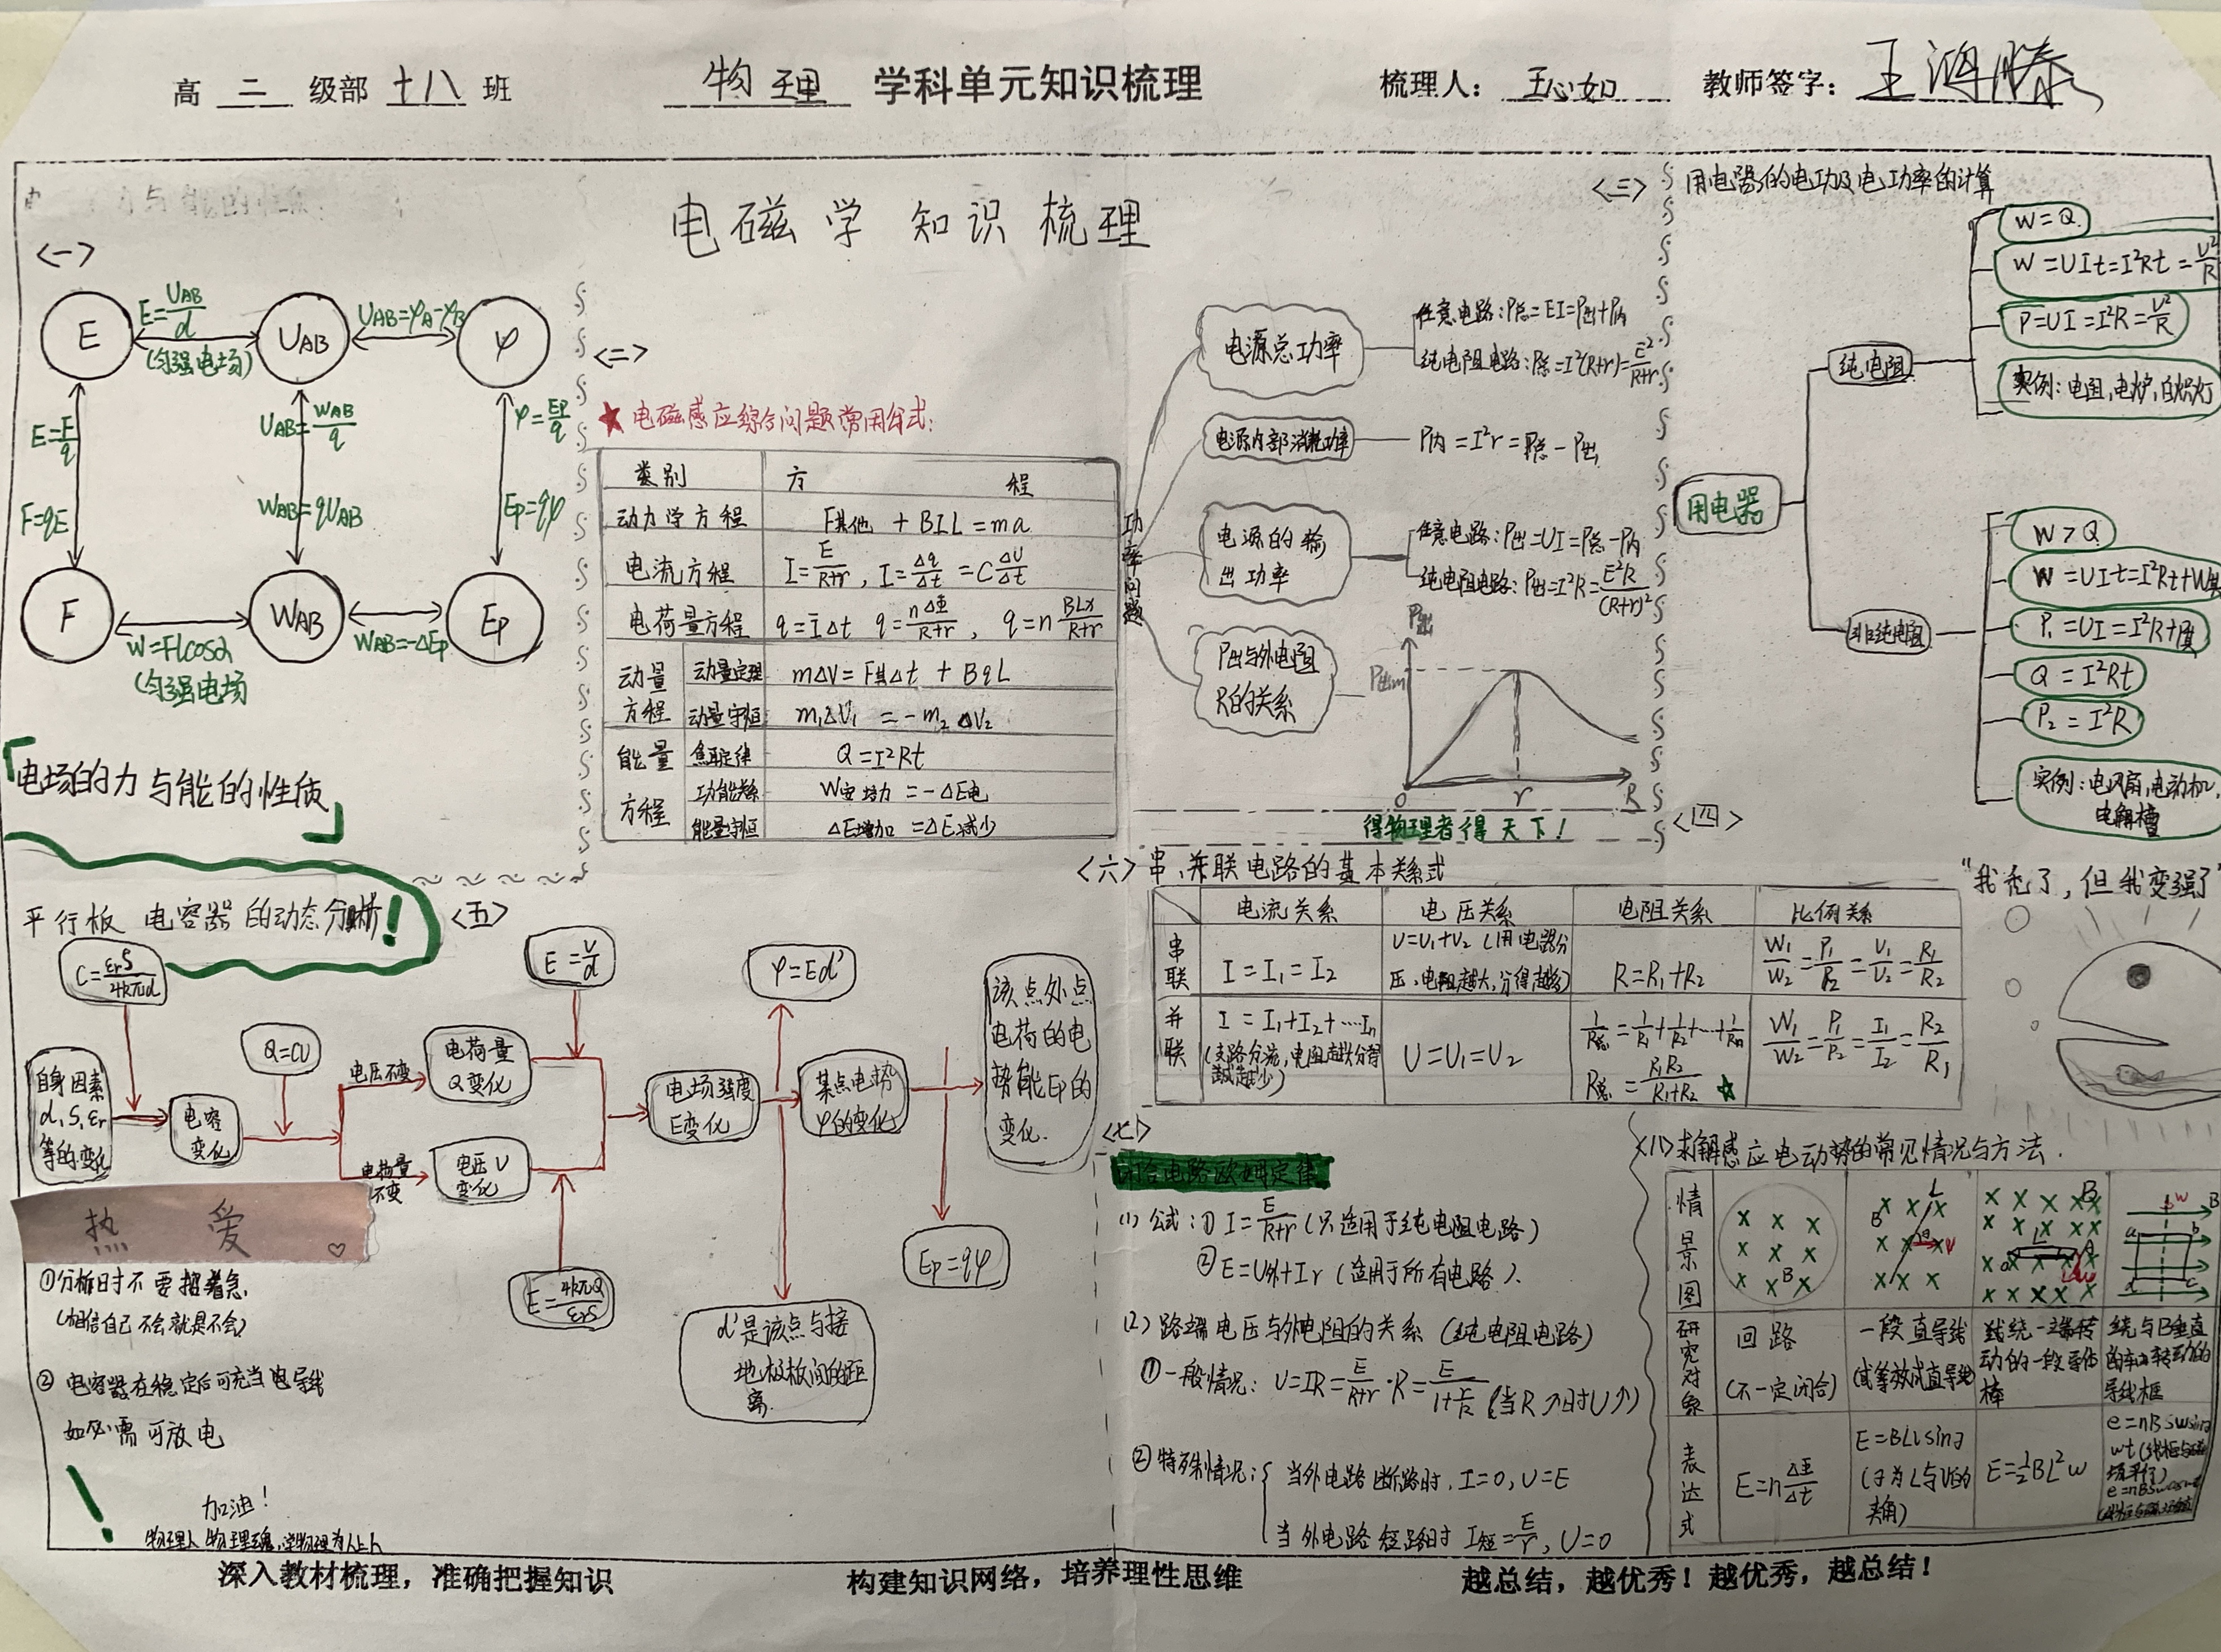 高 二 级部 十八 班
物理 学科单元知识梳理
梳理人: 王心如 教师签字:
电磁学 知识 梳理
<一>
E
E=UAB/d
(匀强电场)
UAB
UAB=φA-φB
φ
E=F/q
F=qE
UAB=WAB/q
WAB=qUAB
φ=EP/q
EP=qφ
F
W=Flcosα
(匀强电场
WAB
WAB=-ΔEP
EP
「电场的力与能的性质」
<二>
★电磁感应综合问题常用公式:
类别 方 程
动力学方程 F其他 + BIL = ma
电流方程 I=E/R+r, I=Δq/Δt =CΔU/Δt
电荷量方程 q=ĪΔt q=nΔΦ/R+r, q=nBLx/R+r
动量方程 动量定理 mΔV=F其Δt + BqL
动量守恒 m₁ΔV₁ =-m₂ΔV₂
能量方程 焦耳定律 Q=I²Rt
功能关系 W安培力 =-ΔE电
能量守恒 ΔE增加 =ΔE减少
<三>
功率问题
电源总功率
任意电路:P总=EI=P出+P内
纯电阻电路:P总=I²(R+r)=E²/R+r
电源内部消耗功率
P内=I²r=P总-P出
电源的输出功率
任意电路:P出=UI=P总-P内
纯电阻电路:P出=I²R=E²R/(R+r)²
P出与外电阻
R的关系
P出
P出m
0 r R
得物理者得天下!
<四>
用电器的电功及电功率的计算
用电器
纯电阻
W=Q
W=UIt=I²Rt=U²/R
P=UI=I²R=U²/R
实例:电阻,电炉,白炽灯
非纯电阻
W>Q
W=UIt=I²Rt+W其
P₁=UI=I²R+P其
Q=I²Rt
P₂=I²R
实例:电风扇,电动机,
电解槽
平行板 电容器的动态分析!
<五>
C=εrS/4kπd
自身因素
d,S,εr
等的变化
Q=CU
电容
变化
电压不变
电荷量
不变
电荷量
Q变化
电压U
变化
E=U/d
E=4kπQ/εrS
电场强度
E变化
φ=Ed'
d'是该点与接
地极板间的距
离.
某点电势
φ的变化
EP=qφ
该点处点
电荷的电
势能EP的
变化.
热 爱 ♡
①分析时不要想着急
(相信自己不会就是不会)
② 电容器在稳定后可充当电导线
如必需可放电
!
加油!
物理人 物理魂,学物理为人上人
<六>串、并联电路的基本关系式
电流关系 电压关系 电阻关系 比例关系
串联 I=I₁=I₂ U=U₁+U₂(用电器分压,电阻越大,分得越多) R=R₁+R₂ W₁/W₂=P₁/P₂=U₁/U₂=R₁/R₂
并联 I=I₁+I₂+…In (支路分流,电阻越大分得越少) U=U₁=U₂ 1/R总=1/R₁+1/R₂+…+1/Rn R总=R₁R₂/R₁+R₂ ★ W₁/W₂=P₁/P₂=I₁/I₂=R₂/R₁
"我秃了,但我变强了"
<七>
闭合电路欧姆定律
(1) 公式:① I=E/R+r(只适用于纯电阻电路)
② E=U外+Ir(适用于所有电路).
(2) 路端电压与外电阻的关系(纯电阻电路)
①一般情况: U=IR=E/R+r·R=E/1+r/R(当R↗时U↗)
②特殊情况:{ 当外电路断路时,I=0,U=E
当外电路短路时 I短=E/r,U=0
<八>求解感应电动势的常见情况与方法.
情景图 B L B θ V B L A o ω ω B a b d c
研究对象 回路(不一定闭合) 一段直导线(或等效成直导线) 绕一端转动的一段导体棒 绕与B垂直的轴转动的导线框
表达式 E=nΔΦ/Δt E=BLVsinθ(θ为L与V的夹角) E=½BL²ω e=nBSωsinωt
深入教材梳理,准确把握知识
构建知识网络,培养理性思维
越总结,越优秀!越优秀,越总结!